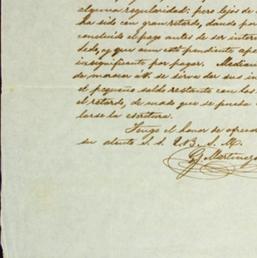 alguna regularidad; pero lejos de
ha sido con gran retardo, dando por
concluido el pago antes de ser inter
dedo, y que aun está pendiente
insignificante por pagar.
de manera á V. se sirva dar sus in
el pequeño saldo restante con los
el retardo, de modo que se pueda
larse la escritura.
Tengo el honor de ofrecer
su atento S. S. Q. B. S. M.
Martinez